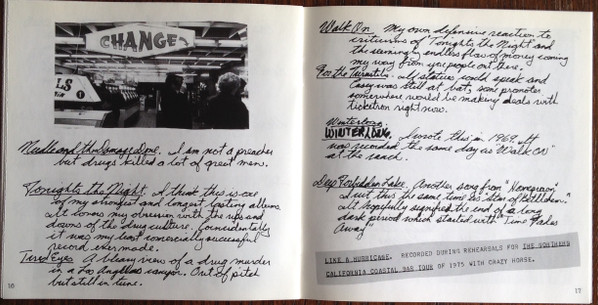 CHANGE
LS
Needle and the Damage Done. I am not a preacher
but drugs killed a lot of great men.
Tonights the Night. I think this is one
of my strongest and longest lasting albums
It covers my obsession with the ups and
downs of the drug culture. Coincidentally
it was my least commercially successful
record ever made.
Tired Eyes A bleary view of a drug murder
in a Los Angeles canyon. Out of pitch
but still in tune.
10
Walk On. My own defensive reaction to
criticisms of Tonights the Night and
the seemingly endless flow of money coming
my way from you people out there.
For the Turnstiles. If statues could speak and
Casey was still at bat, some promoter
somewhere would be making deals with
ticketron right now.
Winterlong.
WINTERLONG. I wrote this in 1969. It
was recorded the same day as "Walk On"
at the ranch.
Deep Forbidden Lake. Another song from "Homegrown"
I cut this the same time as "Star of Bethlehem."
It hopefully signified the end of a long
dark period which started with "Time Fades
Away"
LIKE A HURRICANE. RECORDED DURING REHEARSALS FOR THE NORTHERN
CALIFORNIA COASTAL BAR TOUR OF 1975 WITH CRAZY HORSE.